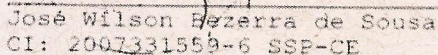 José Wilson Bezerra de Sousa
CI: 2007331559-6 SSP-CE